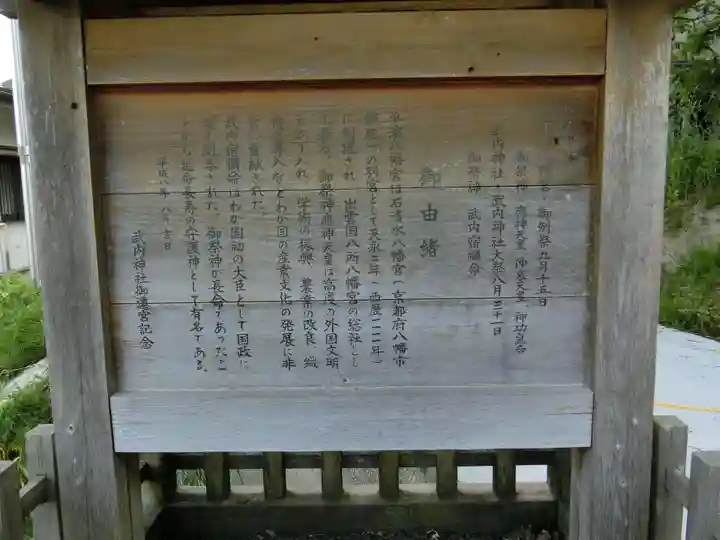 御例祭九月十五日
御祭神 應神天皇 仲哀天皇 神功皇后
武内神社 大祭八月三十一日
御祭神 武内宿禰命
御由緒
平濱八幡宮は石清水八幡宮(京都府八幡市
の別宮として天永二年(西暦一一一一年)
に創建され、出雲国八所八幡宮の総社とし
御祭神應神天皇は高度の外国文明
をとり入れ、学術の振興、農業の改良、織
などわが国の産業文化の発展に非
常に貢献された。
武内宿禰命はわが国初の大臣として国政に
御祭神が長命であったこ
とから延命長寿の守護神として有名である。
平成八年八月吉日
武内神社御遷宮記念